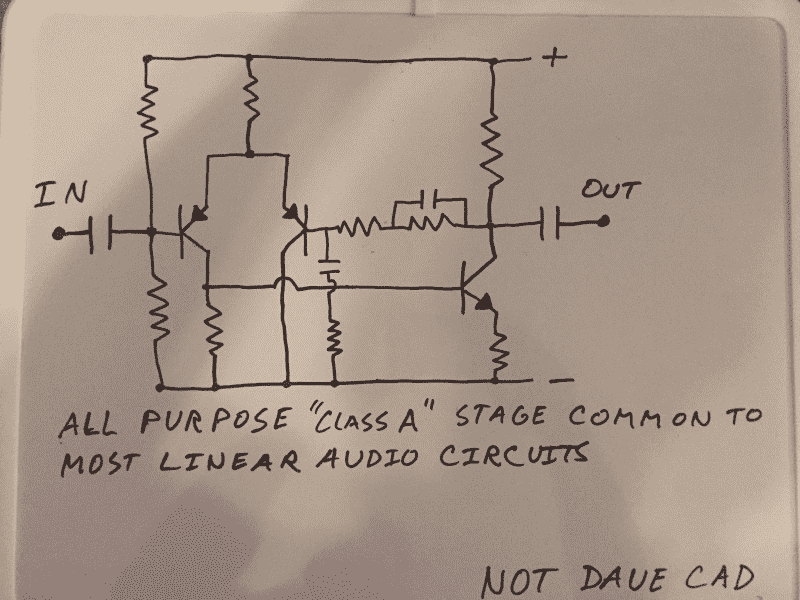 +
IN
OUT
-
ALL PURPOSE "CLASS A" STAGE COMMON TO
MOST LINEAR AUDIO CIRCUITS
NOT DAVE CAD